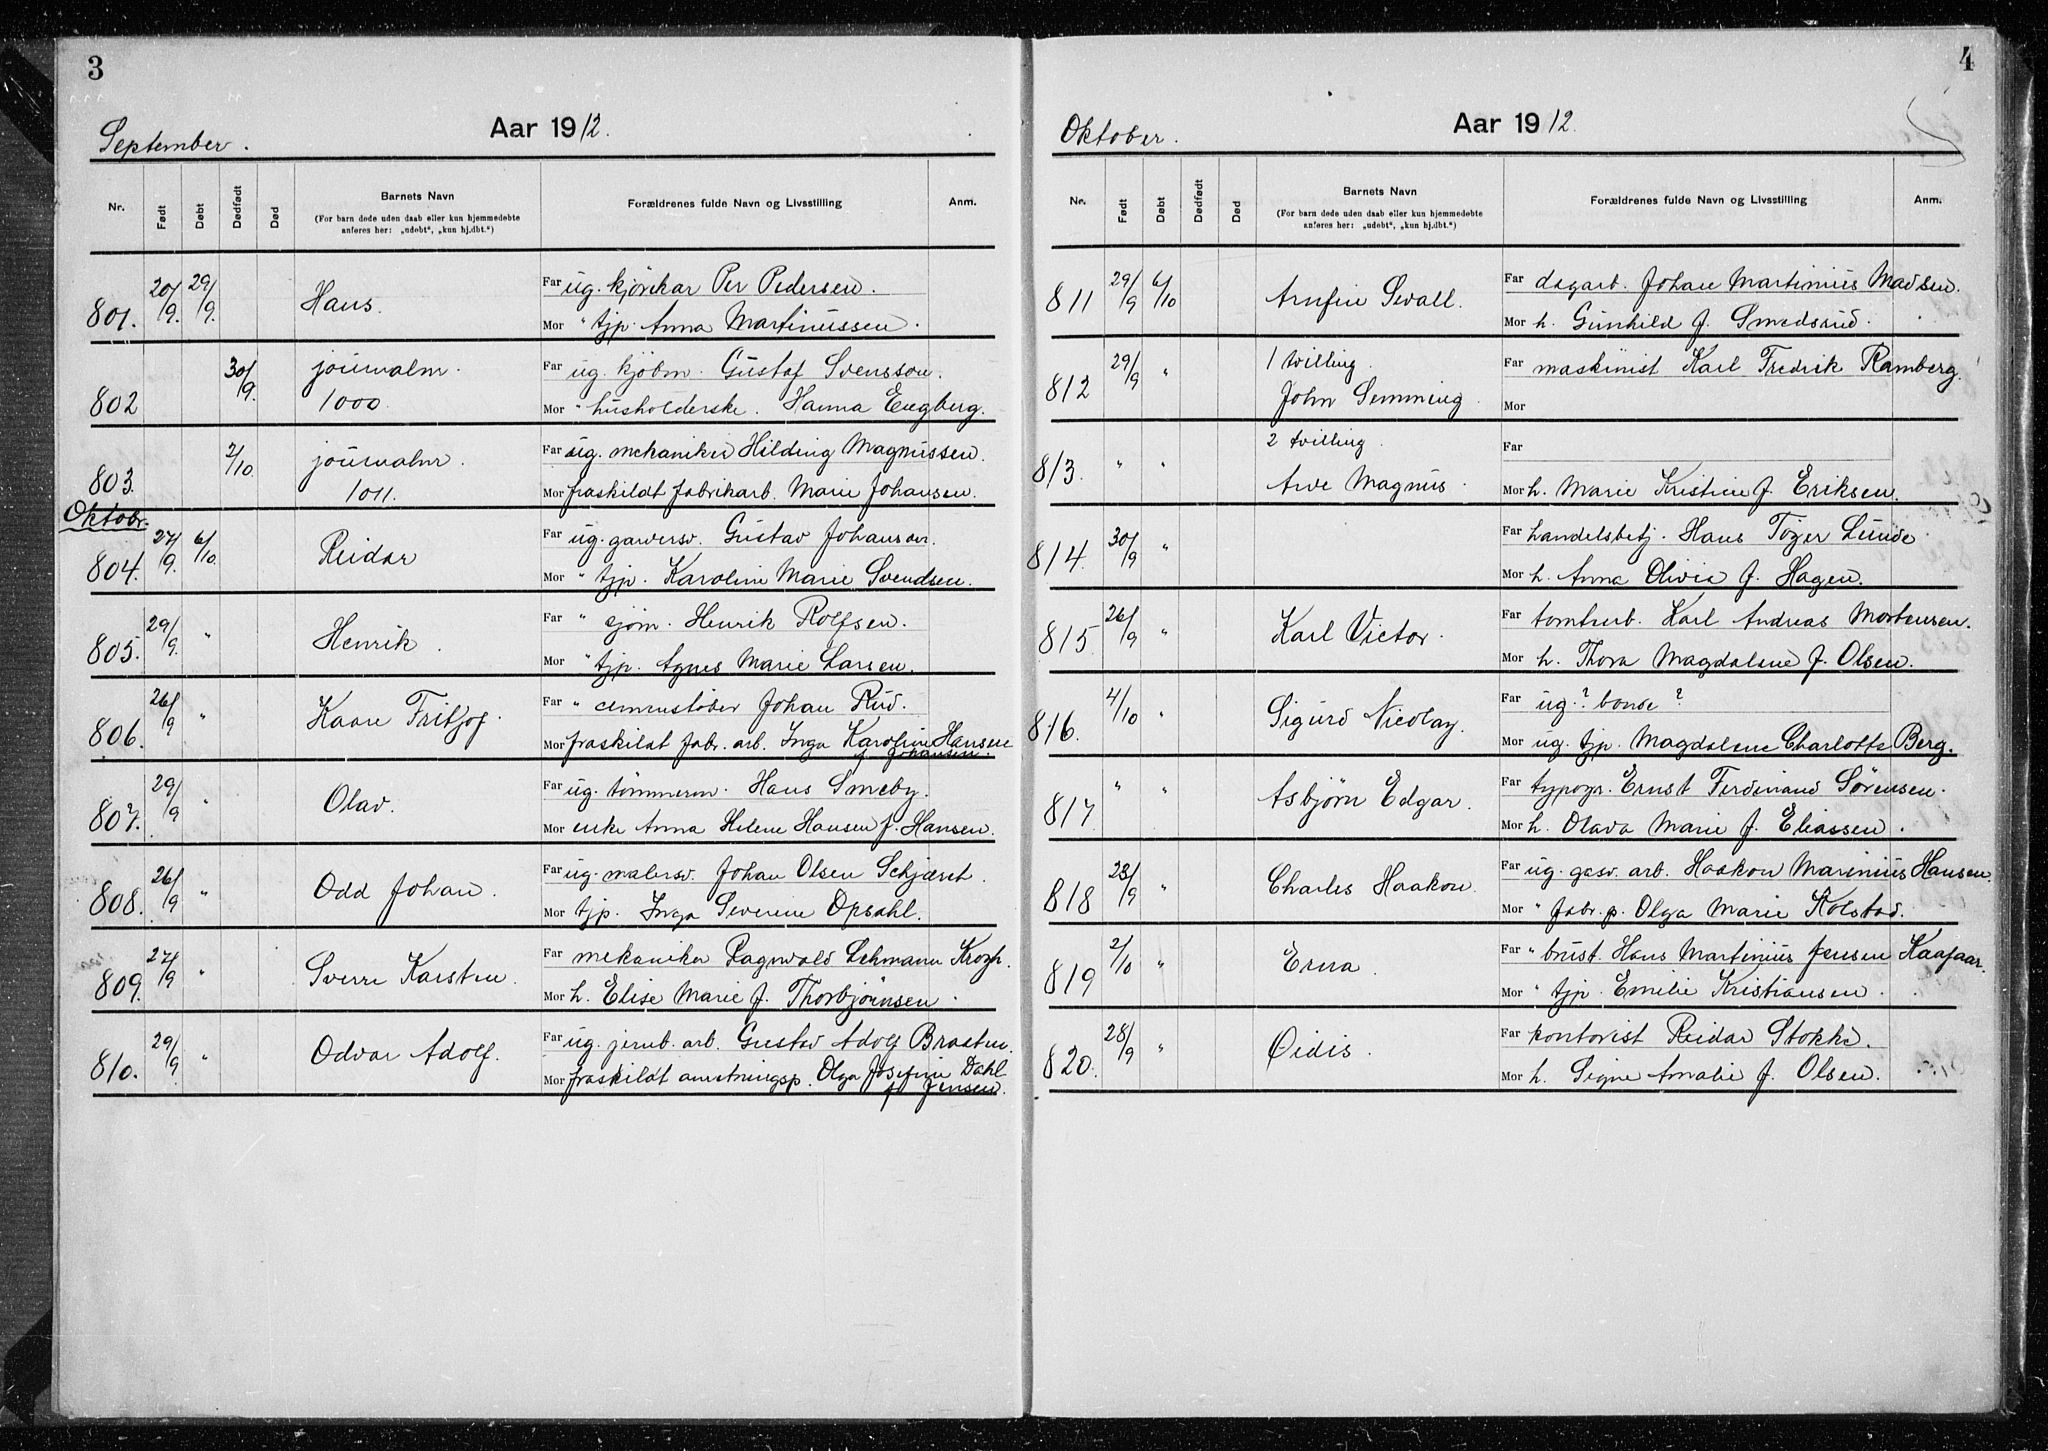 3
September. Aar 1912.
Nr. Født Døbt Dødfødt Død Barnets Navn Forældrenes fulde Navn og Livsstilling Anm.
(For barn døde uden daab eller kun hjemmedøbte
anføres her: „udøbt“, „kun hj.dbt.“)
801. 20/9. 29/9. Hans. Far ug. kjørekar Per Pedersen.
Mor " tjp. Anna Martinussen.
802 30/9. journalnr. Far ug. kjøbm. Gustaf Svensson.
1000. Mor " husholderske. Hanna Engberg.
803. 2/10. journalnr. Far ug. mekaniker Hilding Magnussen.
1011. Mor fraskildt fabrikarb. Marie Johansen.
Oktobr.
804. 27/9. 6/10. Reidar Far ug. garversv. Gustav Johansen.
Mor " tjp. Karoline Marie Svendsen.
805. 29/9. " Henrik. Far " sjøm. Henrik Rolfsen.
Mor " tjp. Agnes Marie Larsen.
806. 26/9 " Kaare Fritjof. Far " cementstøber Johan Rud.
Mor fraskildt fabr. arb. Inga Karoline Hansen
f. Johansen.
807. 29/9 " Olav. Far ug. tømmerm. Hans Smeby.
Mor enke Anna Helene Hansen f. Hansen.
808. 26/9 " Odd Johan. Far ug. malersv. Johan Olsen Schjæret.
Mor tjp. Inga Severine Opsahl.
809. 27/9 " Sverre Karsten. Far mekaniker Ragnvald Lehmann Krogh.
Mor h. Elise Marie f. Thorbjørnsen.
810. 29/9. " Odvar Adolf. Far ug. jernb. arb. Gustav Adolf Braaten.
Mor fraskildt anretningsp. Olga Josefine Dahl
f. Jensen.
4
Oktober. Aar 1912.
Nr. Født Døbt Dødfødt Død Barnets Navn Forældrenes fulde Navn og Livsstilling Anm.
(For barn døde uden daab eller kun hjemmedøbte
anføres her: „udøbt“, „kun hj.dbt.“)
811 29/9 6/10 Arnfin Svall. Far dagarb. Johan Martinius Madsen.
Mor h. Gunhild f. Smedsrud.
812 29/9 " 1 tvilling. Far maskinist Karl Fredrik Ramberg.
John Semming. Mor
813. " " 2 tvilling. Far
Arve Magnus. Mor h. Marie Kristine f. Eriksen.
814. 30/9 " Far handelsbetj. Hans Tøger Lunde
Mor h. Anna Olivia f. Hagen.
815 26/9 " Karl Victor. Far tomtearb. Karl Andreas Mortensen.
Mor h. Thora Magdalene f. Olsen.
816. 4/10 " Sigurd Nicolay. Far ug. ? bonde ?
Mor ug. tjp. Magdalene Charlotte Berg.
817 " " Asbjørn Edgar. Far typogr. Ernst Ferdinand Sørensen.
Mor h. Olava Marie f. Eliassen.
818 23/9 " Charles Haakon. Far ug. gasv. arb. Haakon Marinius Hansen
Mor " fabr. p. Olga Marie Kolstad.
819 2/10 " Erna. Far " bust. Hans Martinius Jensen Kaafaar.
Mor " tjp. Emilie Kristiansen.
820. 28/9 " Oidis. Far kontorist Reidar Stokke.
Mor h. Signe Amalie f. Olsen.